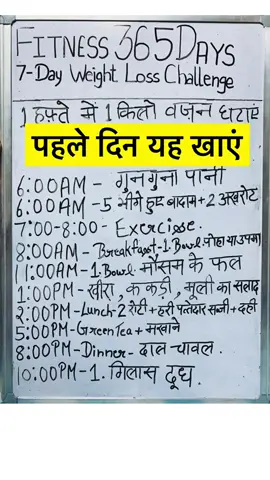 FITNESS 365 DAYS
7-Day Weight Loss Challenge
1 हफ़्ते में 1 किलो वजन घटाएं
पहले दिन यह खाएं
6:00AM - गुनगुना पानी
6:00AM - 5 भीगे हुए बादाम + 2 अखरोट
7:00-8:00 - Exercisse.
8:00AM - Breakfast - 1 Bowl पोहा या उपमा)
11:00AM - 1 Bowl मौसम के फल
1:00PM - खीरा, ककड़ी, मूली का सलाद
2:00PM - Lunch - 2 रोटी + हरी पत्तेदार सब्जी + दही
5:00PM - Green Tea + मखाने
8:00PM - Dinner - दाल चावल.
10:00PM - 1. गिलास दूध.